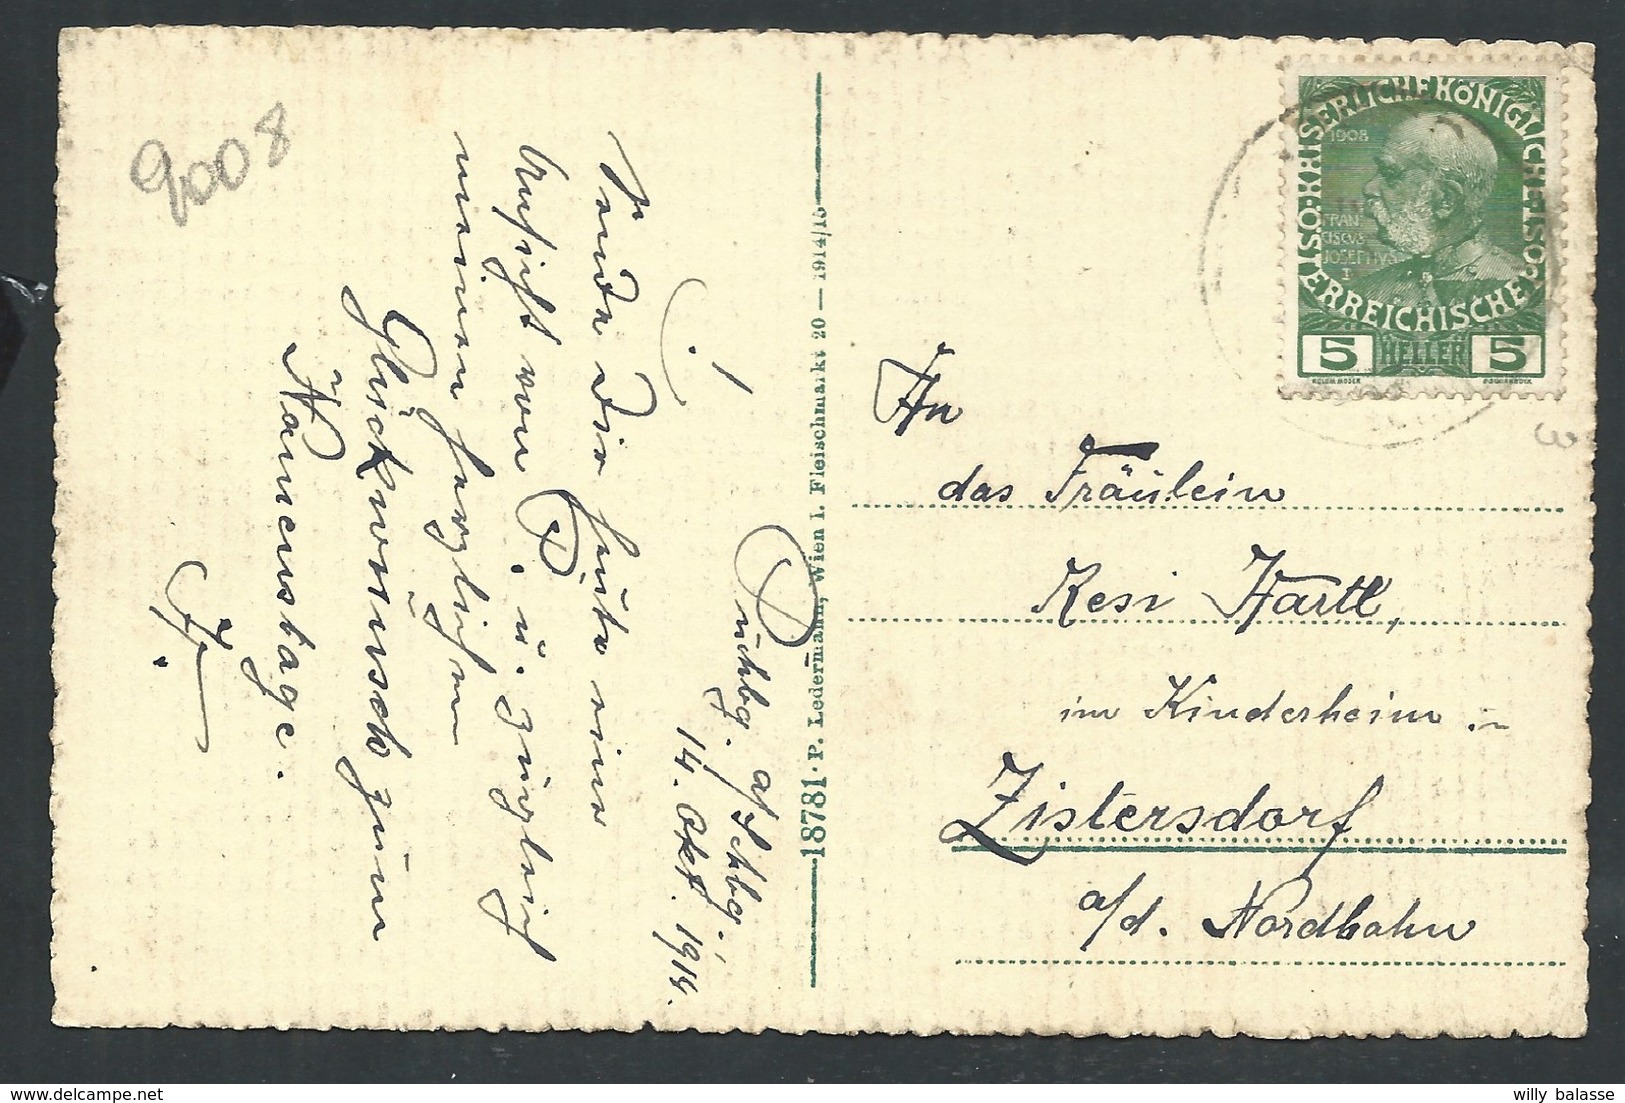 9008
Puchbg. a/Schbg.
14. Okt. 1914.
Sende Dir heute eine
Ansicht von P. u. zugleich
meinen herzlichen
Glückwunsch zum
Namenstage.
18781 · P. Ledermann, Wien I. Fleischmarkt 20 — 1914/15
KAISERLICHE KÖNIGLICHE
ÖSTERREICHISCHE
1908
FRAN-
CISCVS
JOSEPHVS
I
5 HELLER 5
KOLOM. MOSER
An
das Fräulein
Resi Hartl,
im Kinderheim in
Zistersdorf
a/d. Nordbahn
3
willy balasse